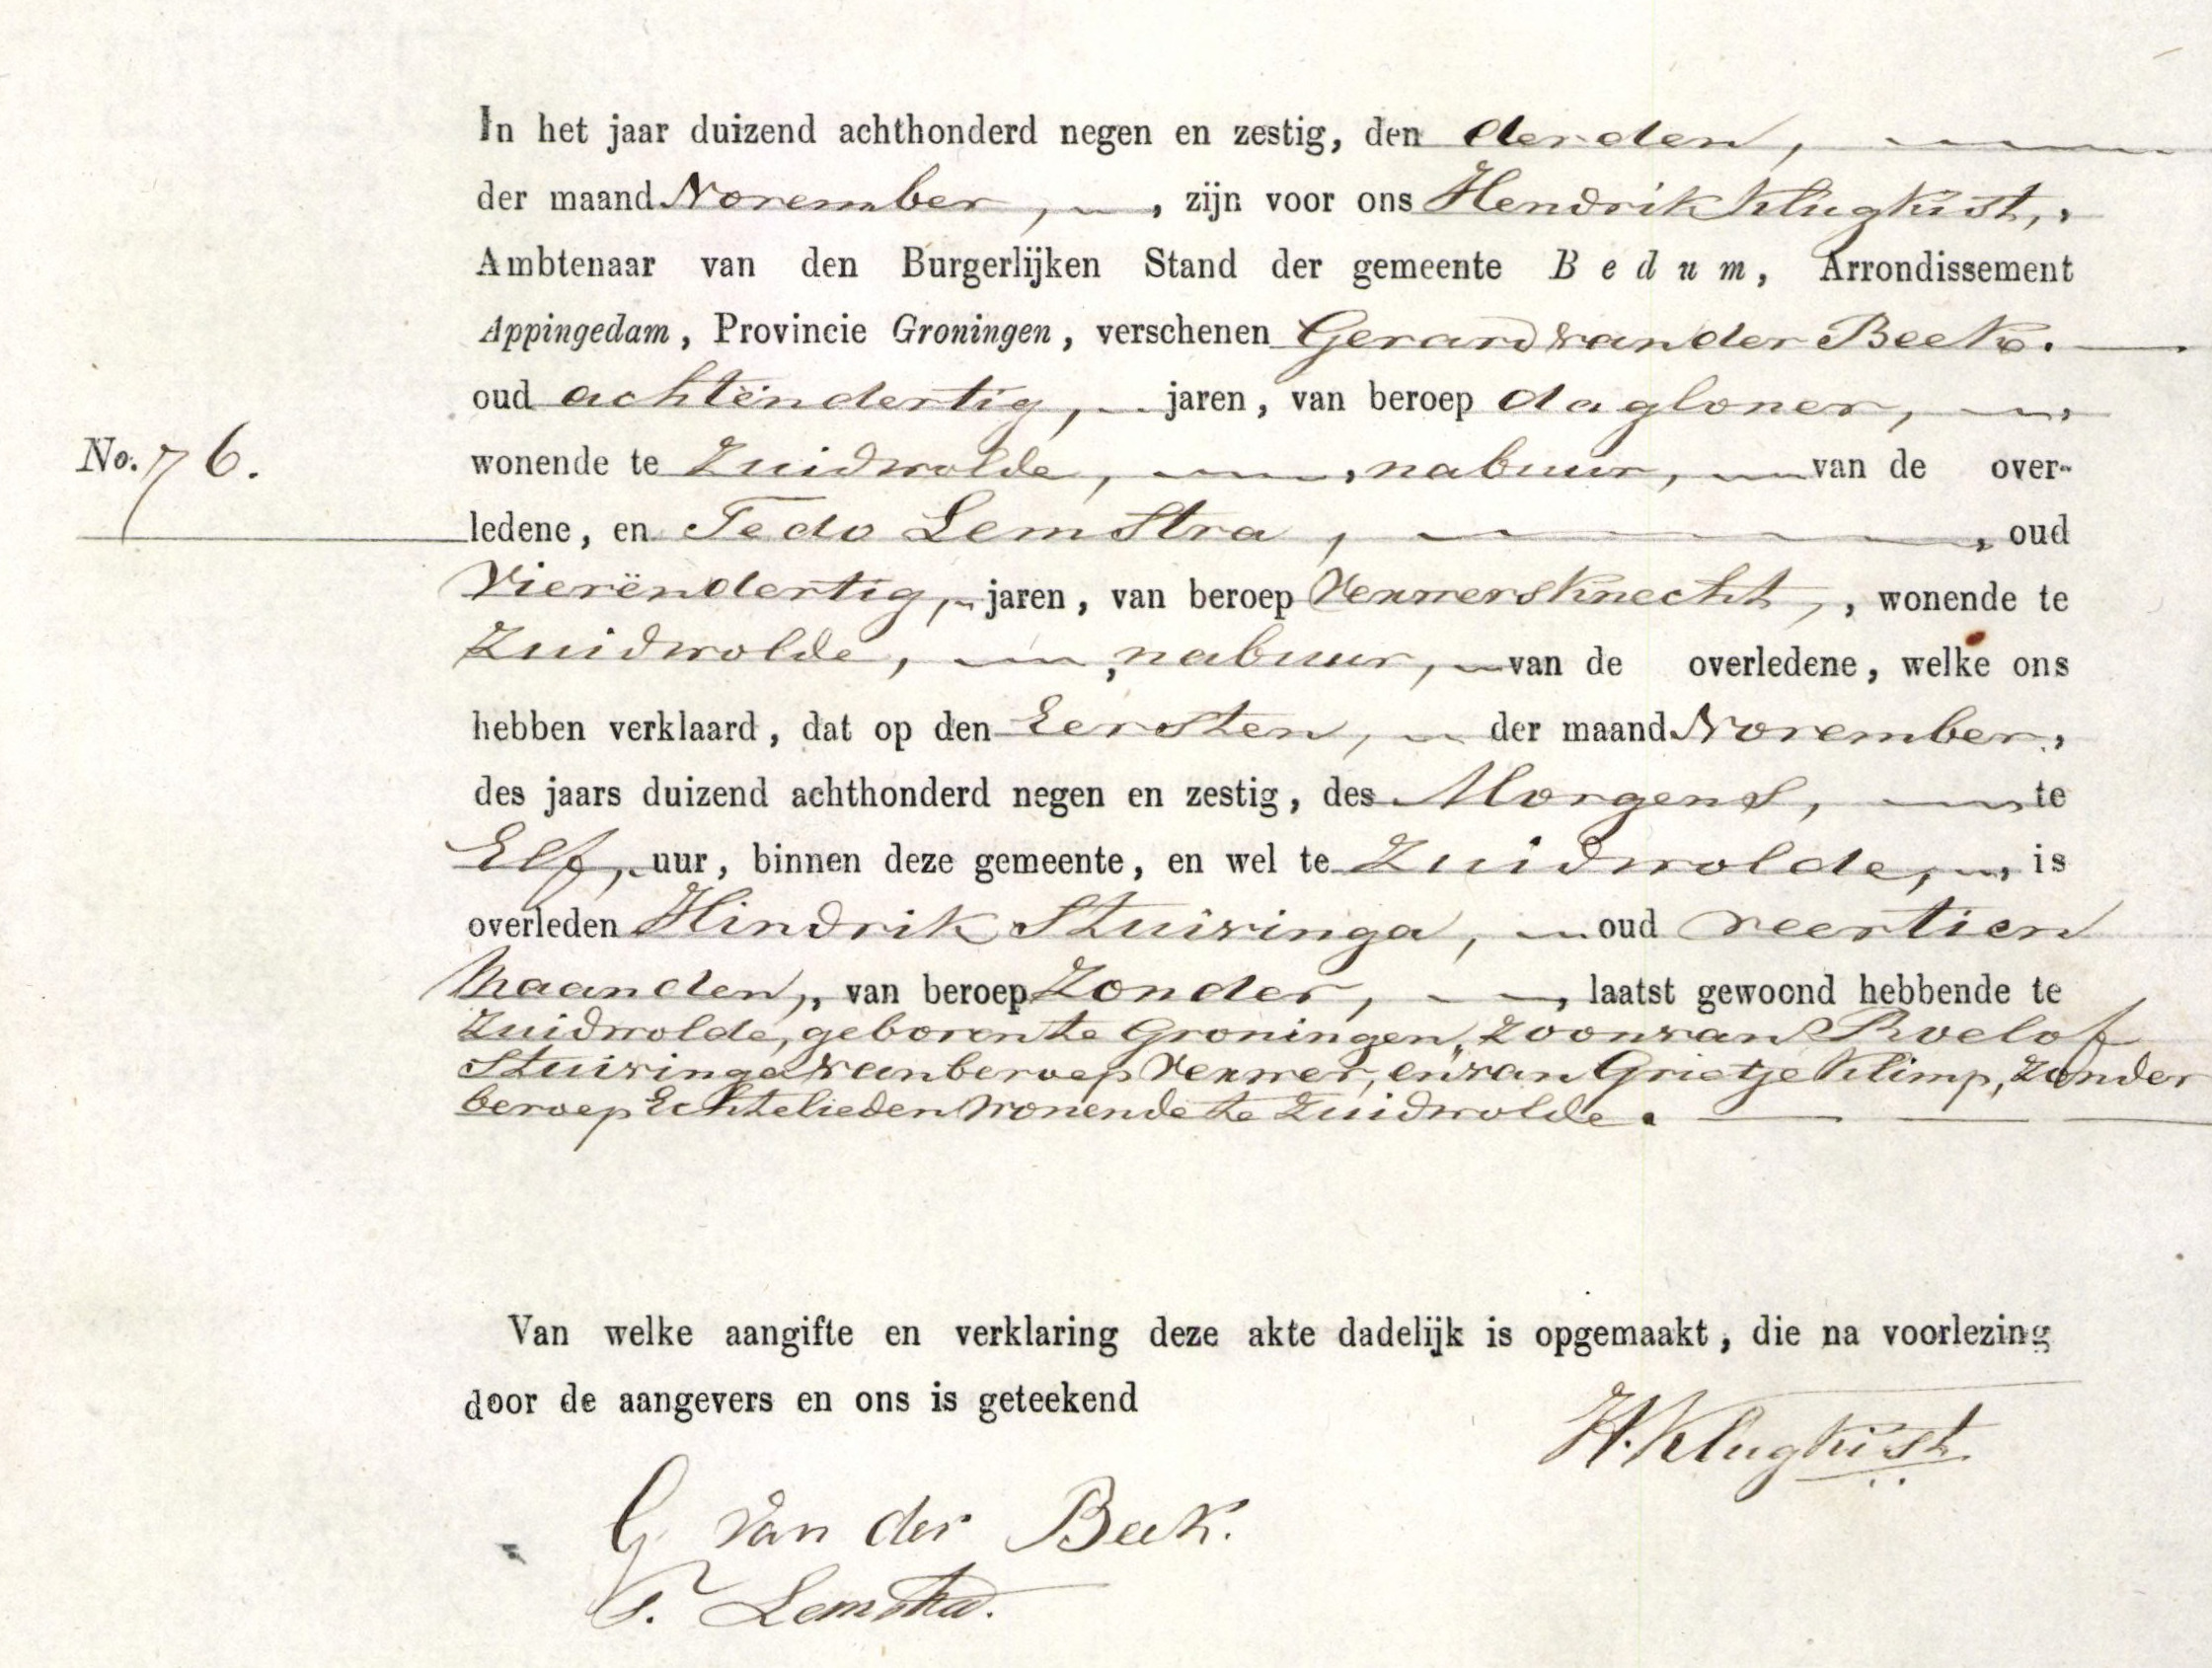 In het jaar duizend achthonderd negen en zestig, den derden,
der maand November, , zijn voor ons Hendrik Klugkist,
Ambtenaar van den Burgerlijken Stand der gemeente Bedum, Arrondissement
Appingedam, Provincie Groningen, verschenen Gerard van der Beek.
oud achtëndertig, jaren, van beroep dagloner,
No. 76.
wonende te Zuidwolde, , nabuur, van de over-
ledene, en Tedo Lemstra, , oud
Vierëndertig, jaren, van beroep Verwersknecht, , wonende te
Zuidwolde, , nabuur, van de overledene, welke ons
hebben verklaard, dat op den Eersten, der maand November,
des jaars duizend achthonderd negen en zestig, des Morgens, te
Elf, uur, binnen deze gemeente, en wel te Zuidwolde, , is
overleden Hindrik Stuivinga, oud veertien
Maanden, , van beroep Zonder, , laatst gewoond hebbende te
Zuidwolde, geboren te Groningen, zoon van Roelof
Stuivinga van beroep Verwer, en van Grietje Klimp, Zonder
beroep Echtelieden wonende te Zuidwolde.
Van welke aangifte en verklaring deze akte dadelijk is opgemaakt, die na voorlezing
door de aangevers en ons is geteekend
H. Klugkist
G van der Beek.
T. Lemstra.